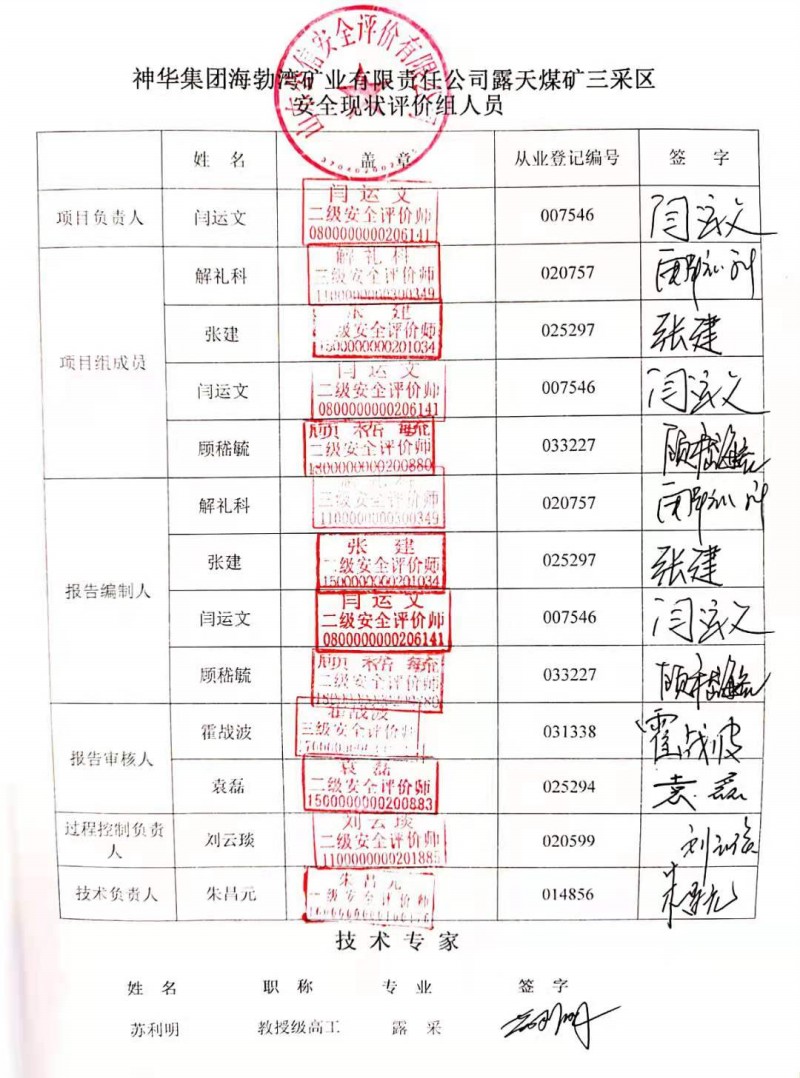 神华集团海勃湾矿业有限责任公司露天煤矿三采区
安全现状评价组人员
姓 名 盖 章 从业登记编号 签 字
项目负责人 闫运文 闫运文 二级安全评价师 0800000000206141 007546 闫运文
项目组成员
解礼科 解礼科 三级安全评价师 1100000000300349 020757 解礼科
张建 张建 级安全评价师 1500000000201034 025297 张建
闫运文 闫运文 二级安全评价师 0800000000206141 007546 闫运文
顾嵇毓 顾嵇毓 二级安全评价师 1800000000200880 033227 顾嵇毓
报告编制人
解礼科 三级安全评价师 1100000000300349 020757 解礼科
张建 张建 二级安全评价师 1500000000201034 025297 张建
闫运文 闫运文 二级安全评价师 0800000000206141 007546 闫运文
顾嵇毓 顾嵇毓 二级安全评价师 033227 顾嵇毓
报告审核人
霍战波 霍战波 三级安全评价师 031338 霍战波
袁磊 袁磊 二级安全评价师 1500000000200883 025294 袁磊
过程控制负责人 刘云琰 刘云琰 二级安全评价师 1100000000201885 020599 刘云琰
技术负责人 朱昌元 朱昌元 一级安全评价师 014856 朱昌元
技 术 专 家
姓 名 职 称 专 业 签 字
苏利明 教授级高工 露 采 苏利明